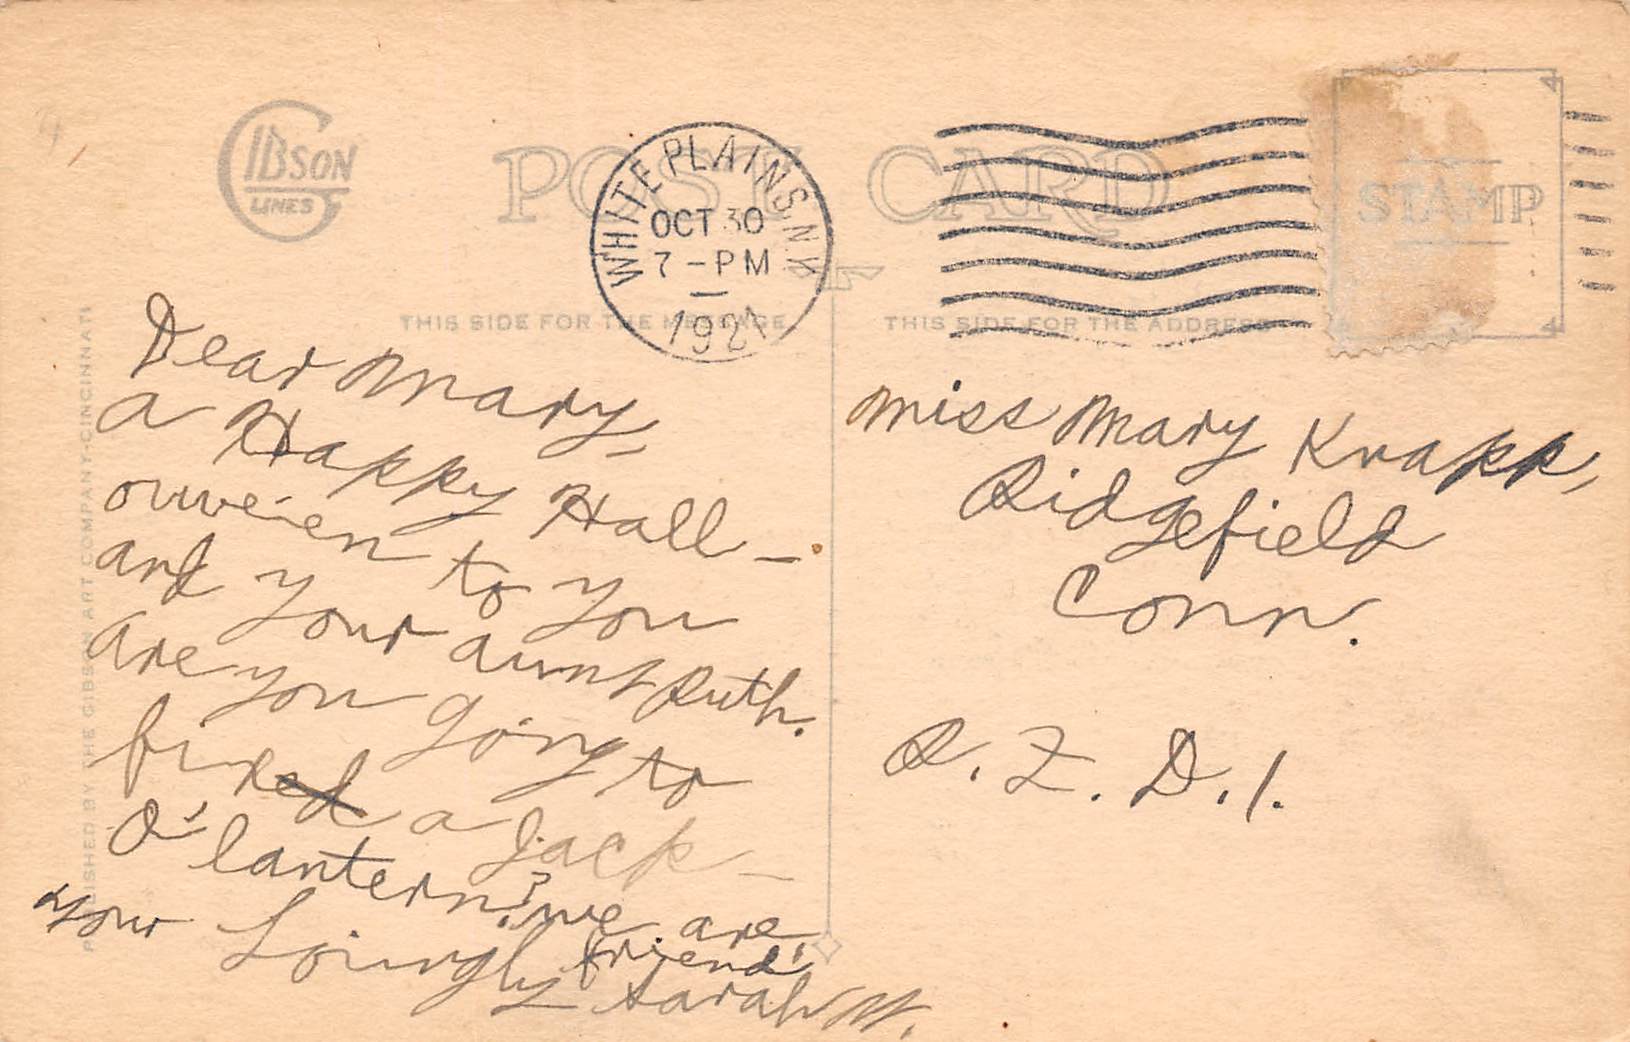 GIBSON
LINES
POST CARD
WHITE PLAINS. N.Y.
OCT 30
7-PM
1921
STAMP
THIS SIDE FOR THE MESSAGE
THIS SIDE FOR THE ADDRESS
PUBLISHED BY THE GIBSON ART COMPANY-CINCINNATI
Dear Mary,
a Happy Hall-
owe-en to you
and your aunt Ruth.
Are you going to
fix a Jack-
O' lantern? we are
your Lovingly friend
Sarah W.
Miss Mary Knapp,
Ridgefield
Conn.
R. F. D. 1.